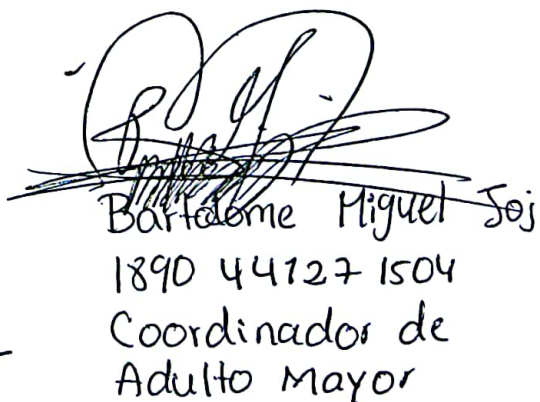 Bartolome Miguel Joj
1890 44127 1504
Coordinador de
Adulto Mayor